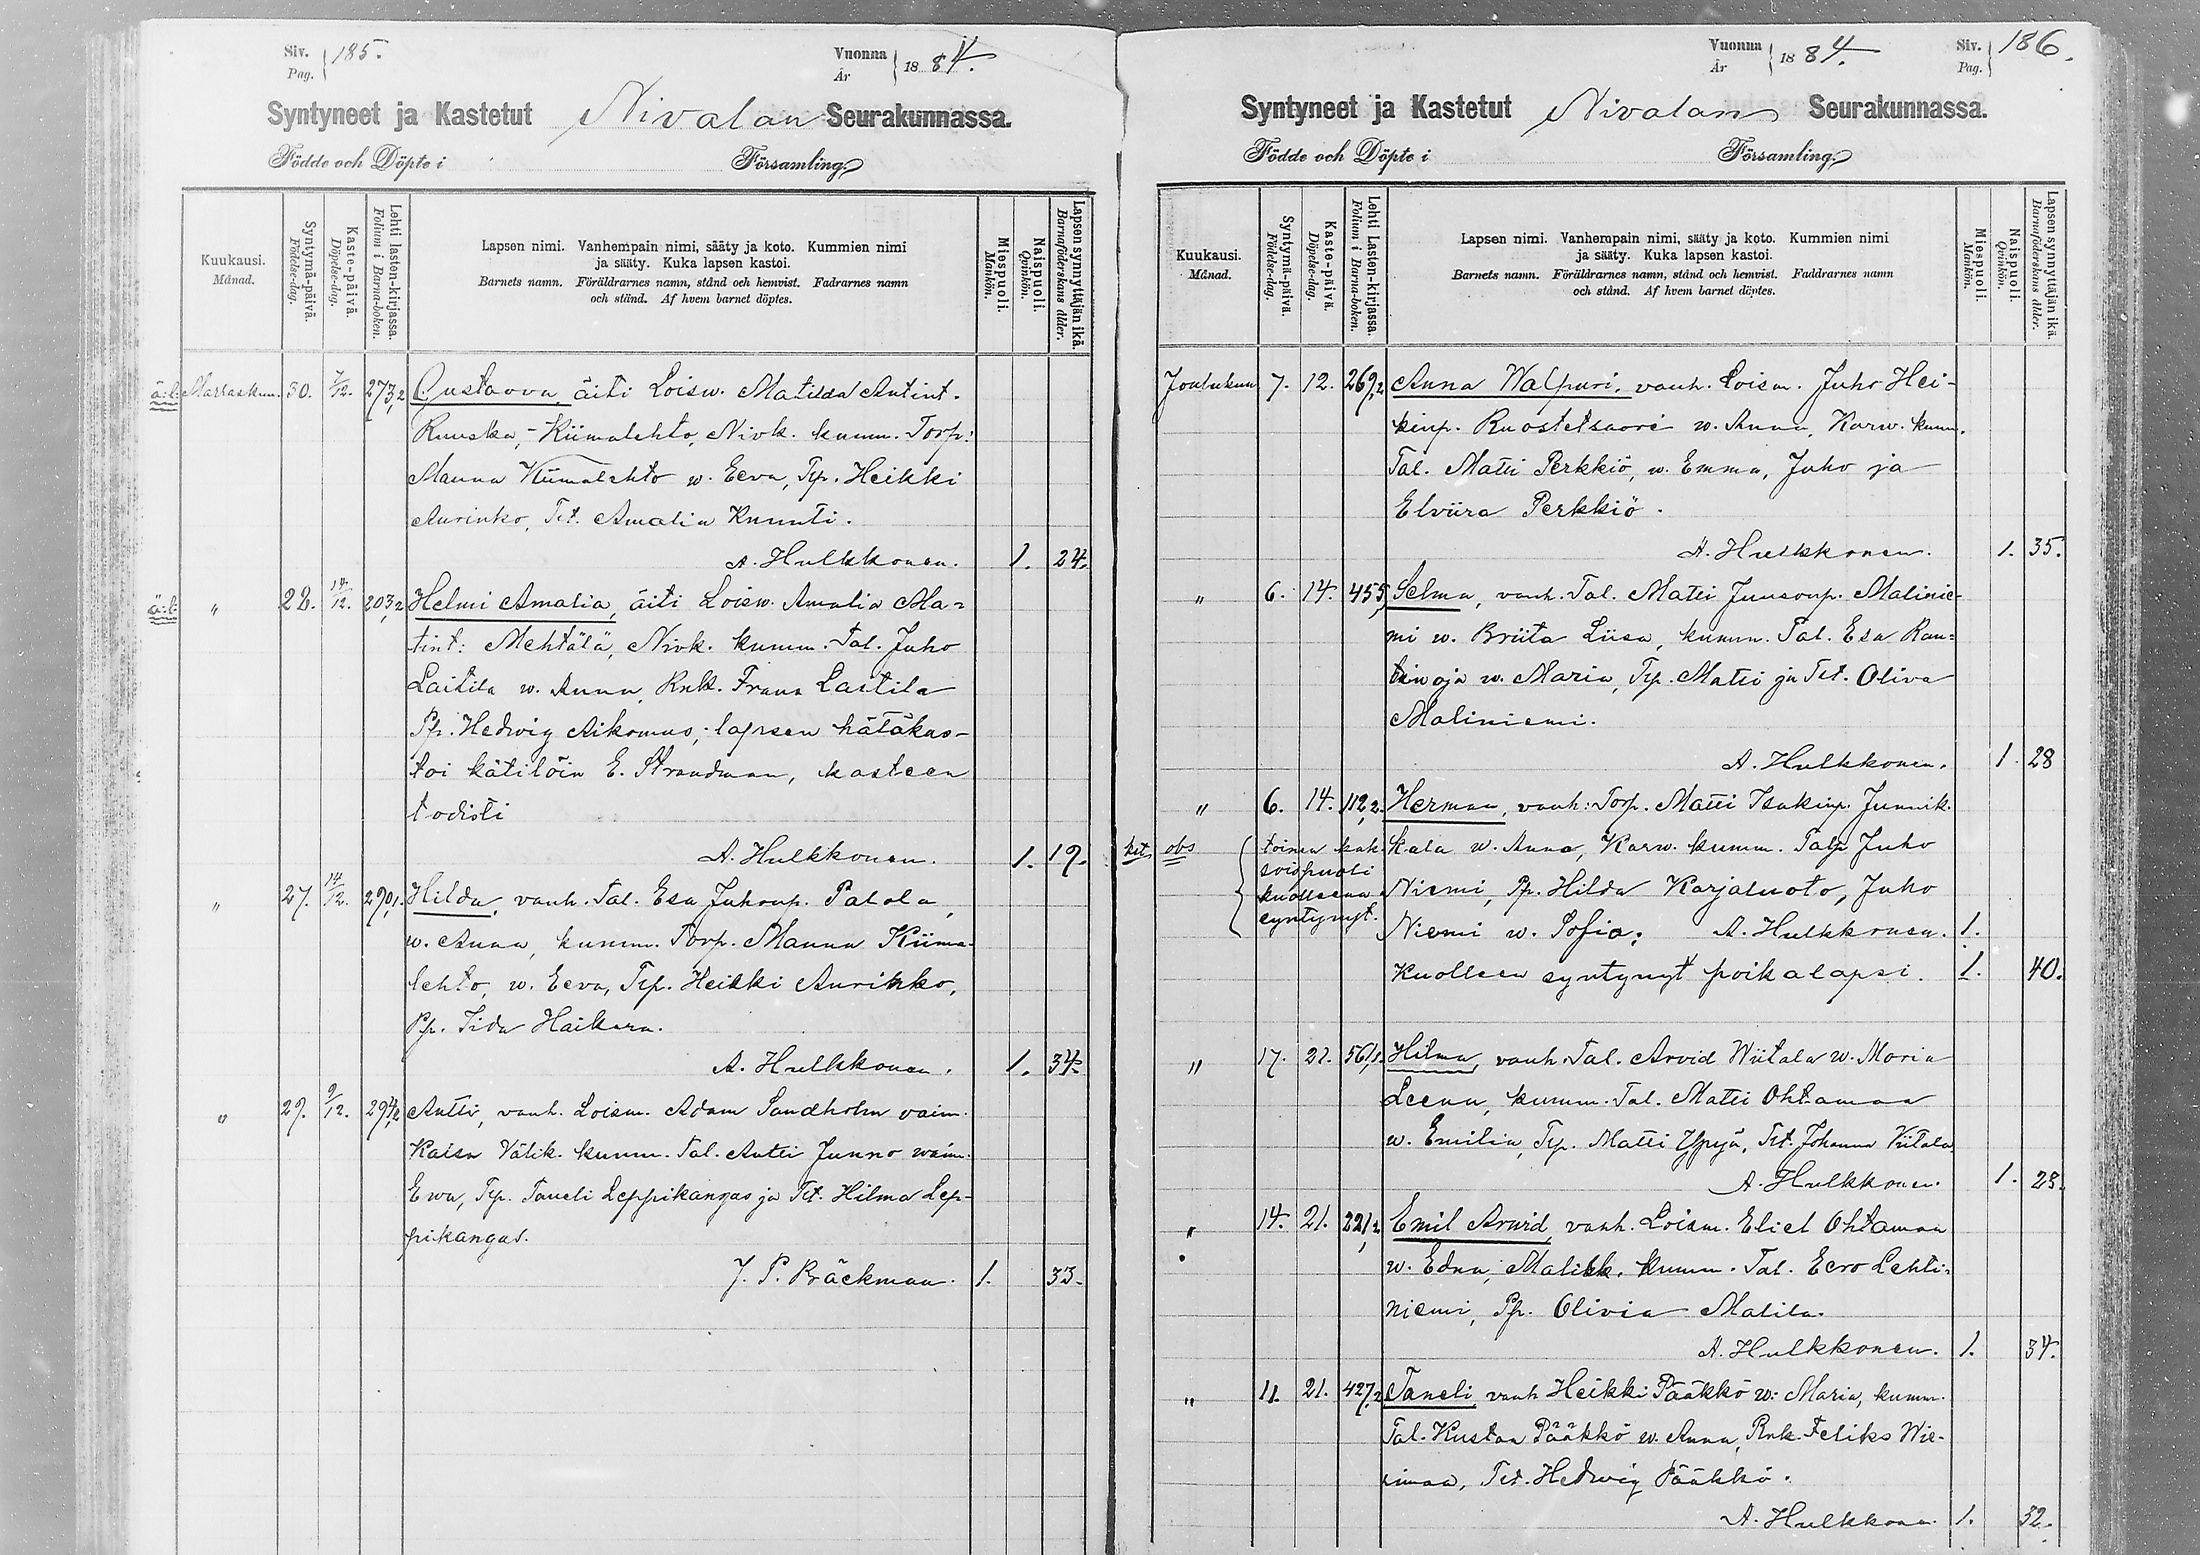 Siv. 185.
Pag.
Vuonna 1884.
År
Syntyneet ja Kastetut Nivalan Seurakunnassa.
Födde och Döpte i Församling.
Kuukausi.
Månad.
Syntymä-päivä.
Födelse-dag.
Kaste-päivä.
Döpelse-dag.
Lehti lasten-kirjassa.
Folium i Barna-boken.
Lapsen nimi. Vanhempain nimi, sääty ja koto. Kummien nimi
ja sääty. Kuka lapsen kastoi.
Barnets namn. Föräldrarnes namn, stånd och hemvist. Fadrarnes namn
och stånd. Af hvem barnet döptes.
Miespuoli.
Mankön.
Naispuoli.
Qvinkön.
Lapsen synnyttäjän ikä.
Barnaföderskans ålder.
ä:l: Marraskun. 30. 7/12. 273,2 Gustaava, äiti Loisw. Matilda Antint.
Ruuska, Kiimalehto, Nivk. kumm. Torp:
Mauna Kiimalehto w. Eeva, Tp. Heikki
Aurinko, Tet. Amalia Knuuti.
A. Hulkkonen. 1. 24.
ä:l: " 28. 14/12. 203,2 Helmi Amalia, äiti Loisw. Amalia Ma-
tint: Mehtälä, Nivk. kumm. Tal. Juho
Laitila w. Anna, Rnk. Frans Laitila
Pp. Hedwig Aikomus; lapsen hätäkas-
toi kätilöin E. Strandman, kasteen
todisti
A. Hulkkonen. 1. 19.
" 27. 14/12. 290,1. Hilda, vanh. Tal. Esa Juhonp. Patola,
w. Anna, kumm. Torp. Mauna Kiima-
lehto, w. Eeva, Tp. Heikki Aurinko,
Pp. Iida Haikara.
A. Hulkkonen. 1. 34.
" 29. 9/12. 294,2 Antti, vanh. Loism. Adam Sandholm vaim.
Kaisa Välik. kumm. Tal. Antti Junno waim.
Ewa, Tp. Taneli Leppikangas ja Tet. Hilma Lep-
pikangas.
J. P. Bräckman. 1. 33.
Vuonna 1884.
År
Siv. 186.
Pag.
Syntyneet ja Kastetut Nivalan Seurakunnassa.
Födde och Döpte i Församling.
Kuukausi.
Månad.
Syntymä-päivä.
Födelse-dag.
Kaste-päivä.
Döpelse-dag.
Lehti Lasten-kirjassa.
Folium i Barna-boken.
Lapsen nimi. Vanhempain nimi, sääty ja koto. Kummien nimi
ja sääty. Kuka lapsen kastoi.
Barnets namn. Föräldrarnes namn, stånd och hemvist. Faddrarnes namn
och stånd. Af hvem barnet döptes.
Miespuoli.
Mankön.
Naispuoli.
Qvinkön.
Lapsen synnyttäjän ikä.
Barnaföderskans ålder.
Joulukuu 7. 12. 269,2 Anna Walpuri, vanh. Loism. Juho Hei-
kinp. Ruostetsaari w. Anna, Karw. kumm.
Tal. Matti Perkkiö, w. Emma, Juho ja
Elviira Perkkiö.
A. Hulkkonen. 1. 35.
" 6. 14. 455, Selma, vanh. Tal. Matti Juusonp. Malinie-
mi w. Briita Liisa, kumm. Tal. Esa Rau-
tinoja w. Maria, Tp. Matti ja Tet. Oliva
Maliniemi.
A. Hulkkonen. 1. 28
" 6. 14. 112,2. Herman, vanh: Torp. Matti Isakinp. Junnik-
kala w. Anna, Karw. kumm. Talp Juho
Niemi, Pp. Hilda Karjaluoto, Juho
Niemi w. Sofia. A. Hulkkonen. 1.
kat. obs toinen kak-
soispuoli
kuolleena
syntynyt.
Kuolleen syntynyt poikalapsi. 1. 40.
" 17. 21. 561,1. Hilma, vanh. Tal. Arvid Wiitala w. Maria
Leena, kumm. Tal. Matti Ohtamaa
w. Emilia, Tp. Matti Yppyä, Tet. Johanna Viitala
A. Hulkkonen. 1. 28.
" 14. 21. 221,2 Emil Arwid, vanh. Loism. Eliel Ohtamaa
w. Edna, Malikk. kumm. Tal. Eero Lehti-
niemi, Pp. Olivia Malila.
A. Hulkkonen. 1. 34.
" 11. 21. 427,2 Taneli, vanh Heikki Pääkkö w: Maria, kumm.
Tal. Kustaa Pääkkö w. Anna, Rnk. Feliks Wie-
rimaa, Tet. Hedwig Pääkkö.
A. Hulkkonen. 1. 32.